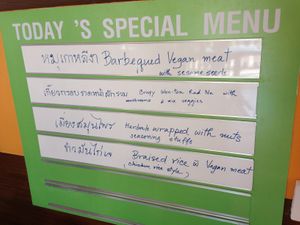 TODAY 'S SPECIAL MENU
หมูเกาหลีงา Barbequed Vegan meat
with sesame seeds
เกี๊ยวกรอบราดหน้าผักรวม Crispy Won-Ton Rad Na with
mushrooms & mix veggies
เมี่ยงสมุนไพร Herbals wrapped with nuts
seasoning stuffs
ข้าวมันไก่เจ Braised rice & Vegan meat
(chicken rice style)